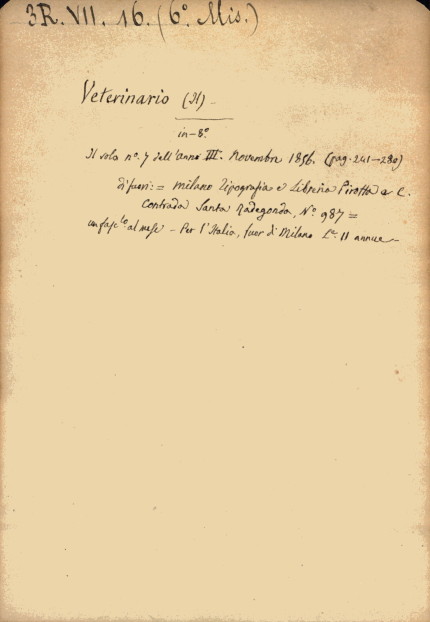 3R. VII. 16. (6º Mis.)
Veterinario (Il) –
in-8º
Il solo nº. 7 dell'anno III. Novembre 1856. (pag. 241-280)
di fuori: = Milano Tipografia e Libreria Pirotta e C.
Contrada Santa Radegonda, Nº 987 =
un fasc.lo al mese – Per l'Italia, fuor di Milano L.e 11 annue –